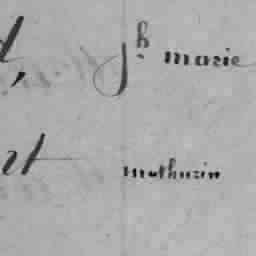 Jh. marie
mathurin